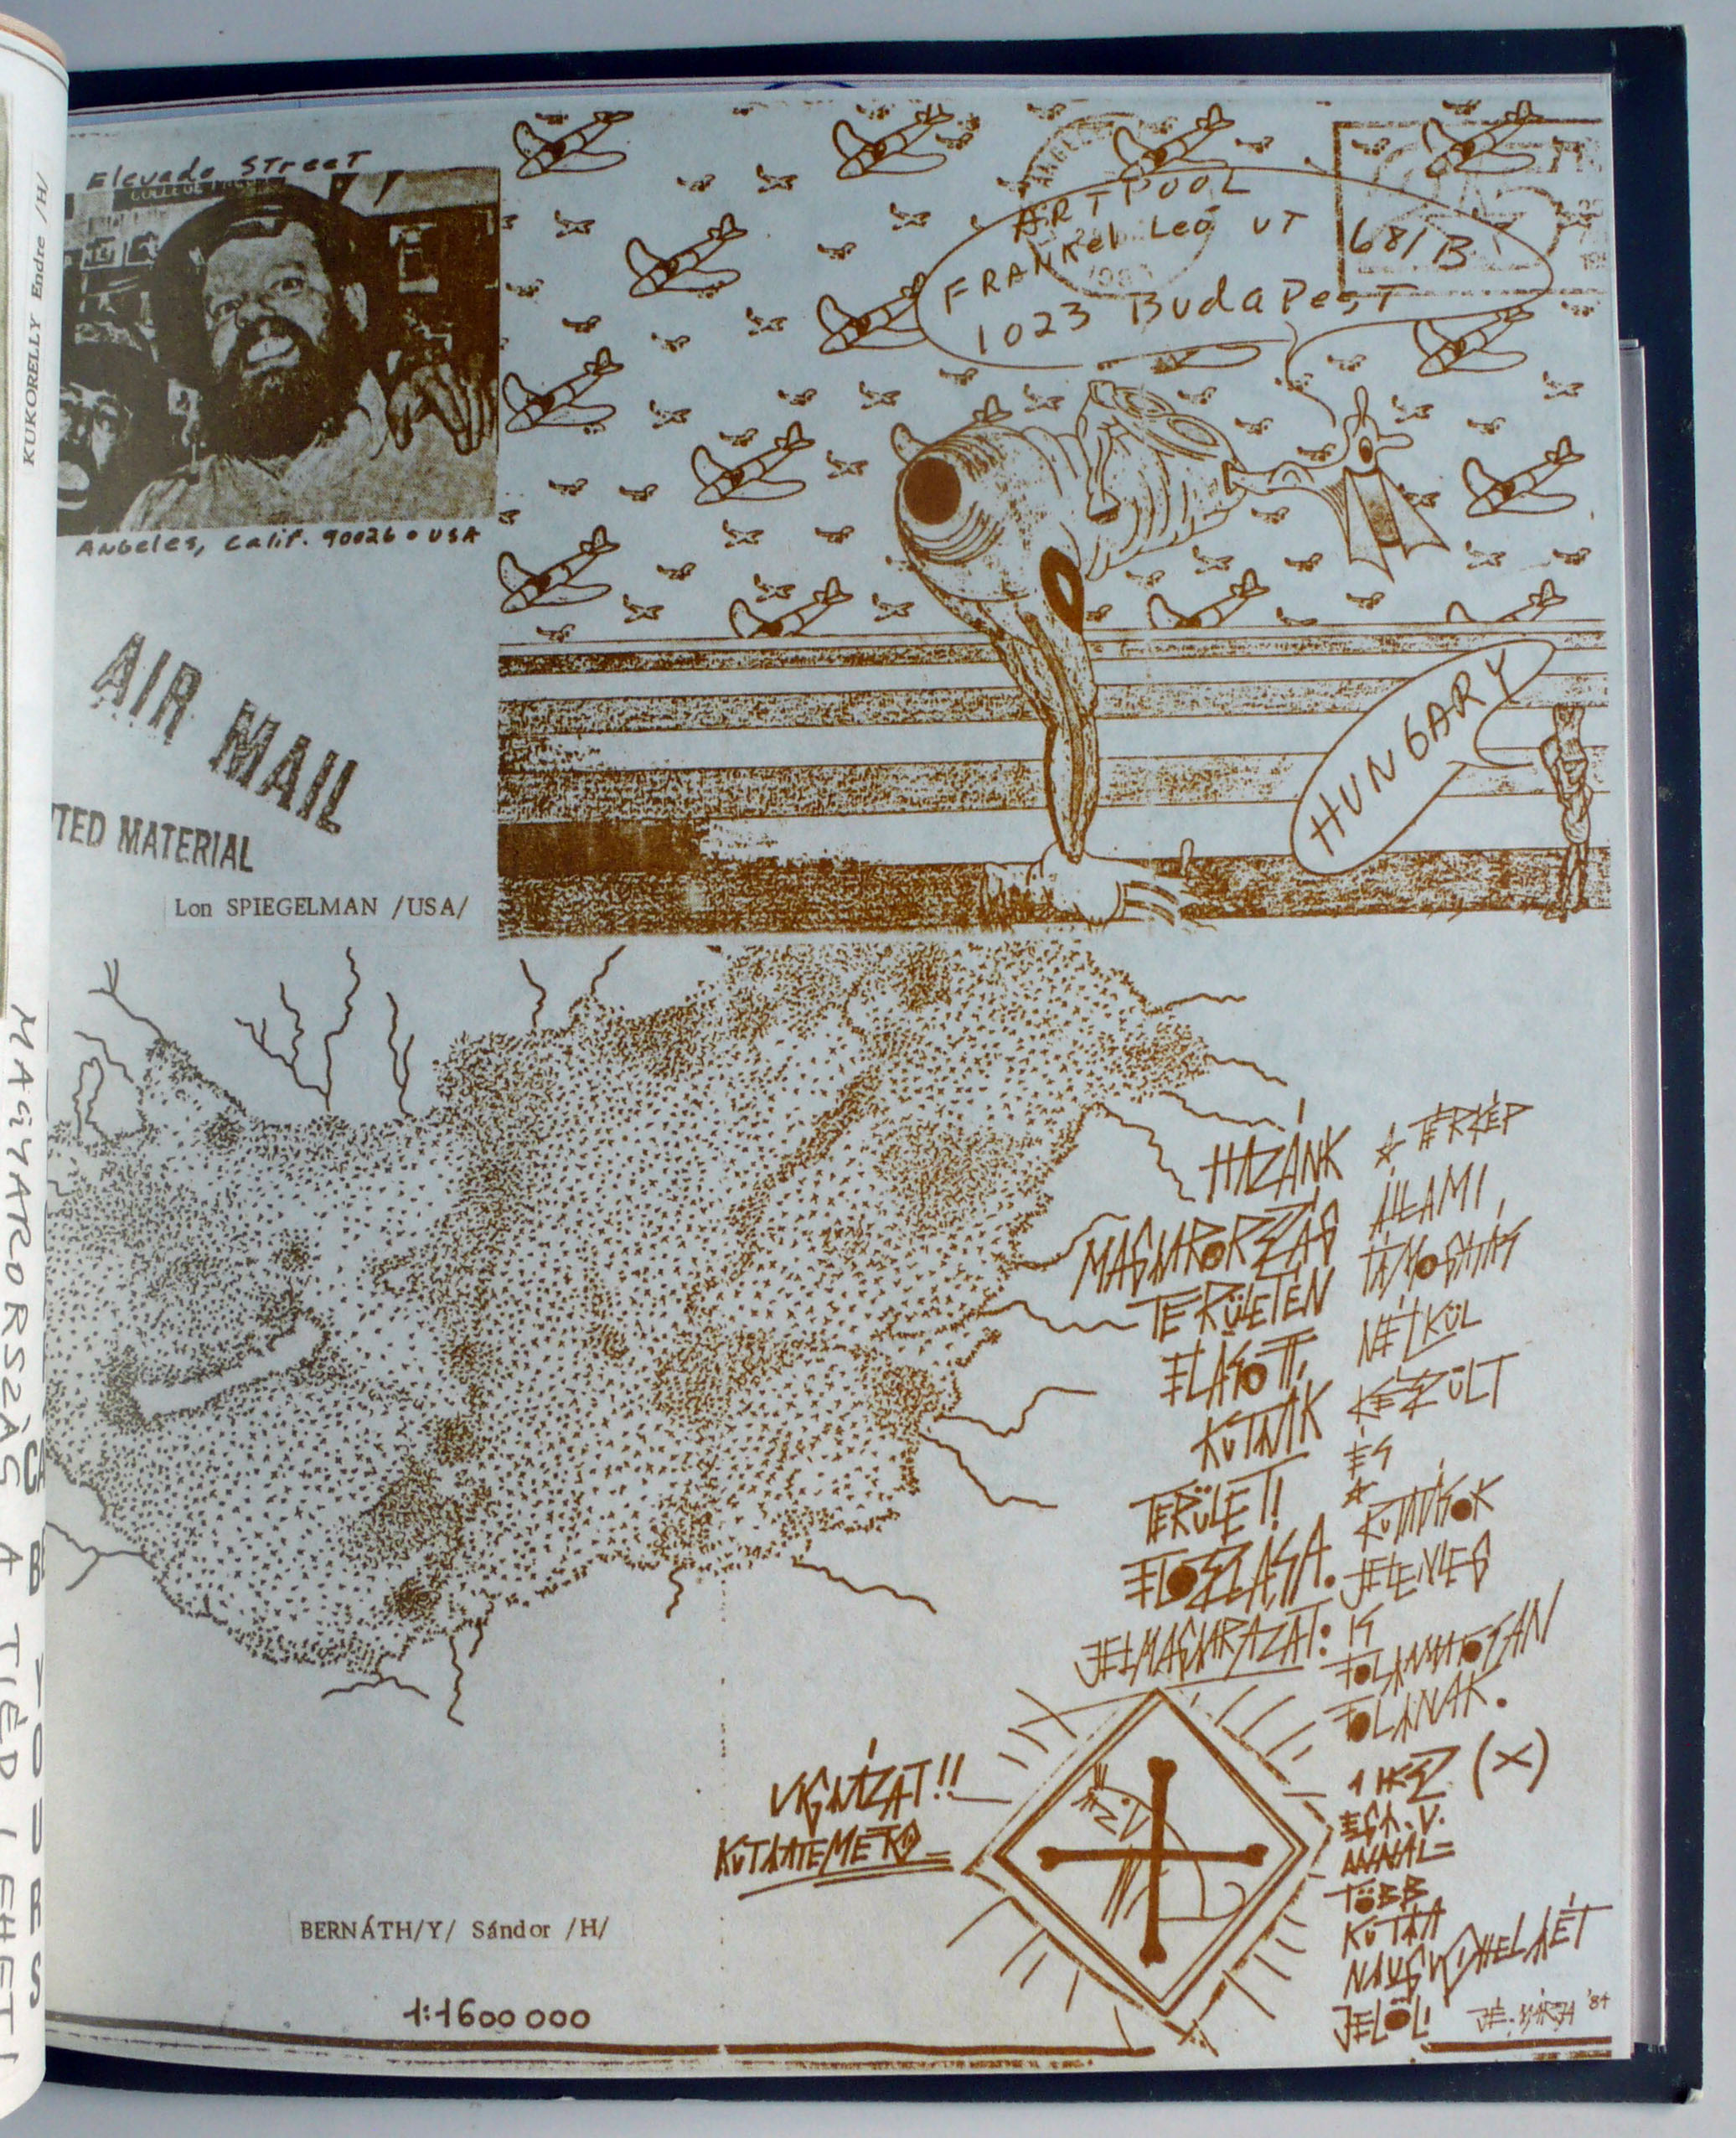 Elevado Street
COLLEGE
Angeles, Calif. 90026 • USA
AIR MAIL
TED MATERIAL
Lon SPIEGELMAN /USA/
ARTPOOL
FRANKEL Leó UT 68/B
1023 BudaPesT
HUNGARY
KUKORELLY Endre /H/
MAGYARORSZÁG A TIÉD LEHET!
HAZÁNK
MAGYARORSZÁG
TERÜLETÉN
ELÁSOTT
KUTYÁK
TERÜLETI
ELOSZLÁSA.
JELMAGYARÁZAT:
A TÉRKÉP
ÁLLAMI
TÁMOGATÁS
NÉLKÜL
KÉSZÜLT
ÉS
A
KUTATÁSOK
JELENLEG
IS
FOLYAMATOSAN
FOLYNAK.
1 (X)
ESŐ. V.
ANNÁL
TÖBB
KUTYA
JELÖLI
'84
VIGYÁZAT!!
KUTYATEMETŐ
BERNÁTH/Y/ Sándor /H/
1:1600 000